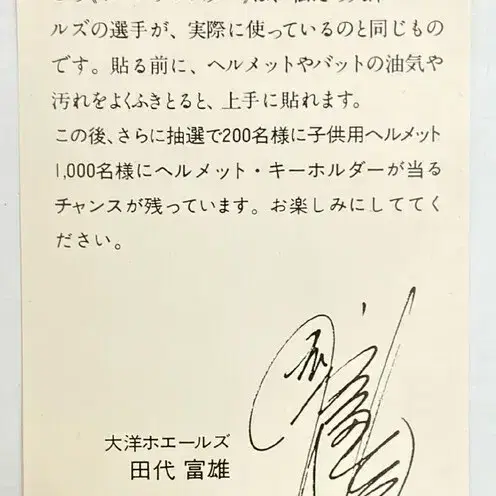 ルズの選手が、実際に使っているのと同じもの
です。貼る前に、ヘルメットやバットの油気や
汚れをよくふきとると、上手に貼れます。
この後、さらに抽選で200名様に子供用ヘルメット
1,000名様にヘルメット・キーホルダーが当る
チャンスが残っています。お楽しみにしててく
ださい。
大洋ホエールズ
田代 富雄